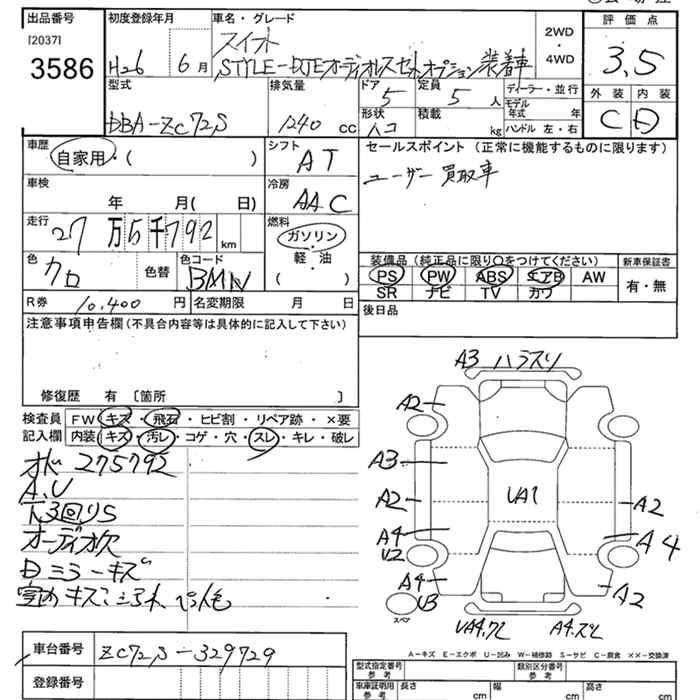 出品番号 初度登録年月 車名・グレード 評価点
[2037]
3586
H26 6月
スイフト
STYLE-DJEオーディオレスセットオプション装着車
2WD
4WD
3.5
型式 排気量 ドア 定員 ディーラー・並行 外装 内装
DBA-ZC72S 1240 cc 5 5 人
モデル年式 年
形状 積載 kg ハンドル 左・右
ハコ
C D
車歴 シフト セールスポイント (正常に機能するものに限ります)
自家用・( ) AT
ユーザー買取車
車検 年 月( 日) 冷房
AAC
走行 燃料
27万5千792 km ガソリン
軽・油
( )
色 クロ 色替 色コード BMW
装備品 (純正品に限り○をつけてください) 新車保証書
PS PW ABS エアB AW 有・無
SR ナビ TV カワ
R券 10,400 円 名変期限 月 日
後日品
注意事項申告欄 (不具合内容等は具体的に記入して下さい)
修復歴 有 〔箇所 〕
検査員 FW キズ・飛石・ヒビ割・リペア跡・×要
記入欄 内装 キズ・汚レ・コゲ・穴・スレ・キレ・破レ
オド 275792
A.U
下3回りS
オーディオ欠
Dミラーキズ
A3 ハラスリ
A2
A3
A2 UA1 A2
A4 A4
U2
A4 A2
U3
スペア
UA4.ワレ A4.スレ
A-キズ E-エクボ U-凹み W-補修跡 S-サビ C-腐食 ××-交換済
車台番号 ZC72S-329729
登録番号
型式指定番号 参考 類別区分番号 参考
車庫証明用 参考 長さ cm 幅 cm 高さ cm